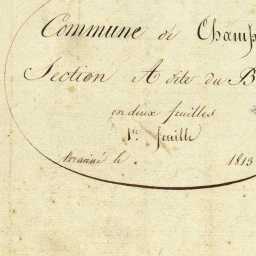 Commune de Champ
Section A dite du B
en deux feuilles
1re feuille
Terminé le . 1813